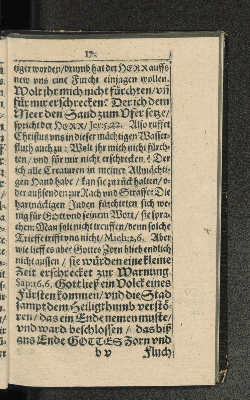 17.
tiger worden / drumb hat der HERR auffs
new uns eine Furcht einjagen wollen.
Wolt ihr mich nicht fürchten / uñ
für mir erschrecken? Der ich dem
Meer den Sand zum Ufer setze /
spricht der HERR / Jer: 5. 22. Also ruffet
Christus uns in dieser mächtigen Wasser-
fluth auch zu: Wolt ihr mich nicht fürch-
ten / und für mir nicht erschrecken? Der
ich alle Creaturen in meiner Allmächti-
gen Hand habe / kan sie zurück halten / o-
der aussenden zur Rach und Straffe? Die
hartnäckigen Juden fürchteten sich we-
nig für Gott und seinem Wort / sie spra-
chen: Man solt nicht treuffen / denn solche
Trieffe trifft uns nicht / Mich: 2, 6. Aber
wie lieff es aber? Gottes Zorn blieb endlich
nicht aussen / sie würden eine kleine
Zeit erschrecket zur Warnung.
Sap: 16, 6. Gott ließ ein Volck eines
Fürsten kommen / und die Stad
sampt dem Heiligthumb verstö-
ren / das ein Ende nemen muste /
und ward beschlossen / das biß
ans Ende GOTTES Zorn und
b v Fluch